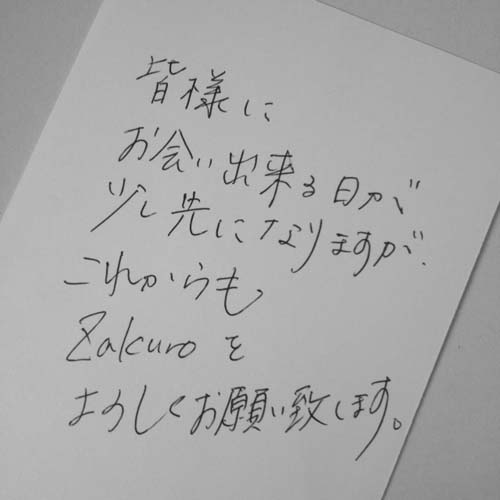 皆様に
お会い出来る日が
少し先になりますが、
これからも
Zakuroを
よろしくお願い致します。